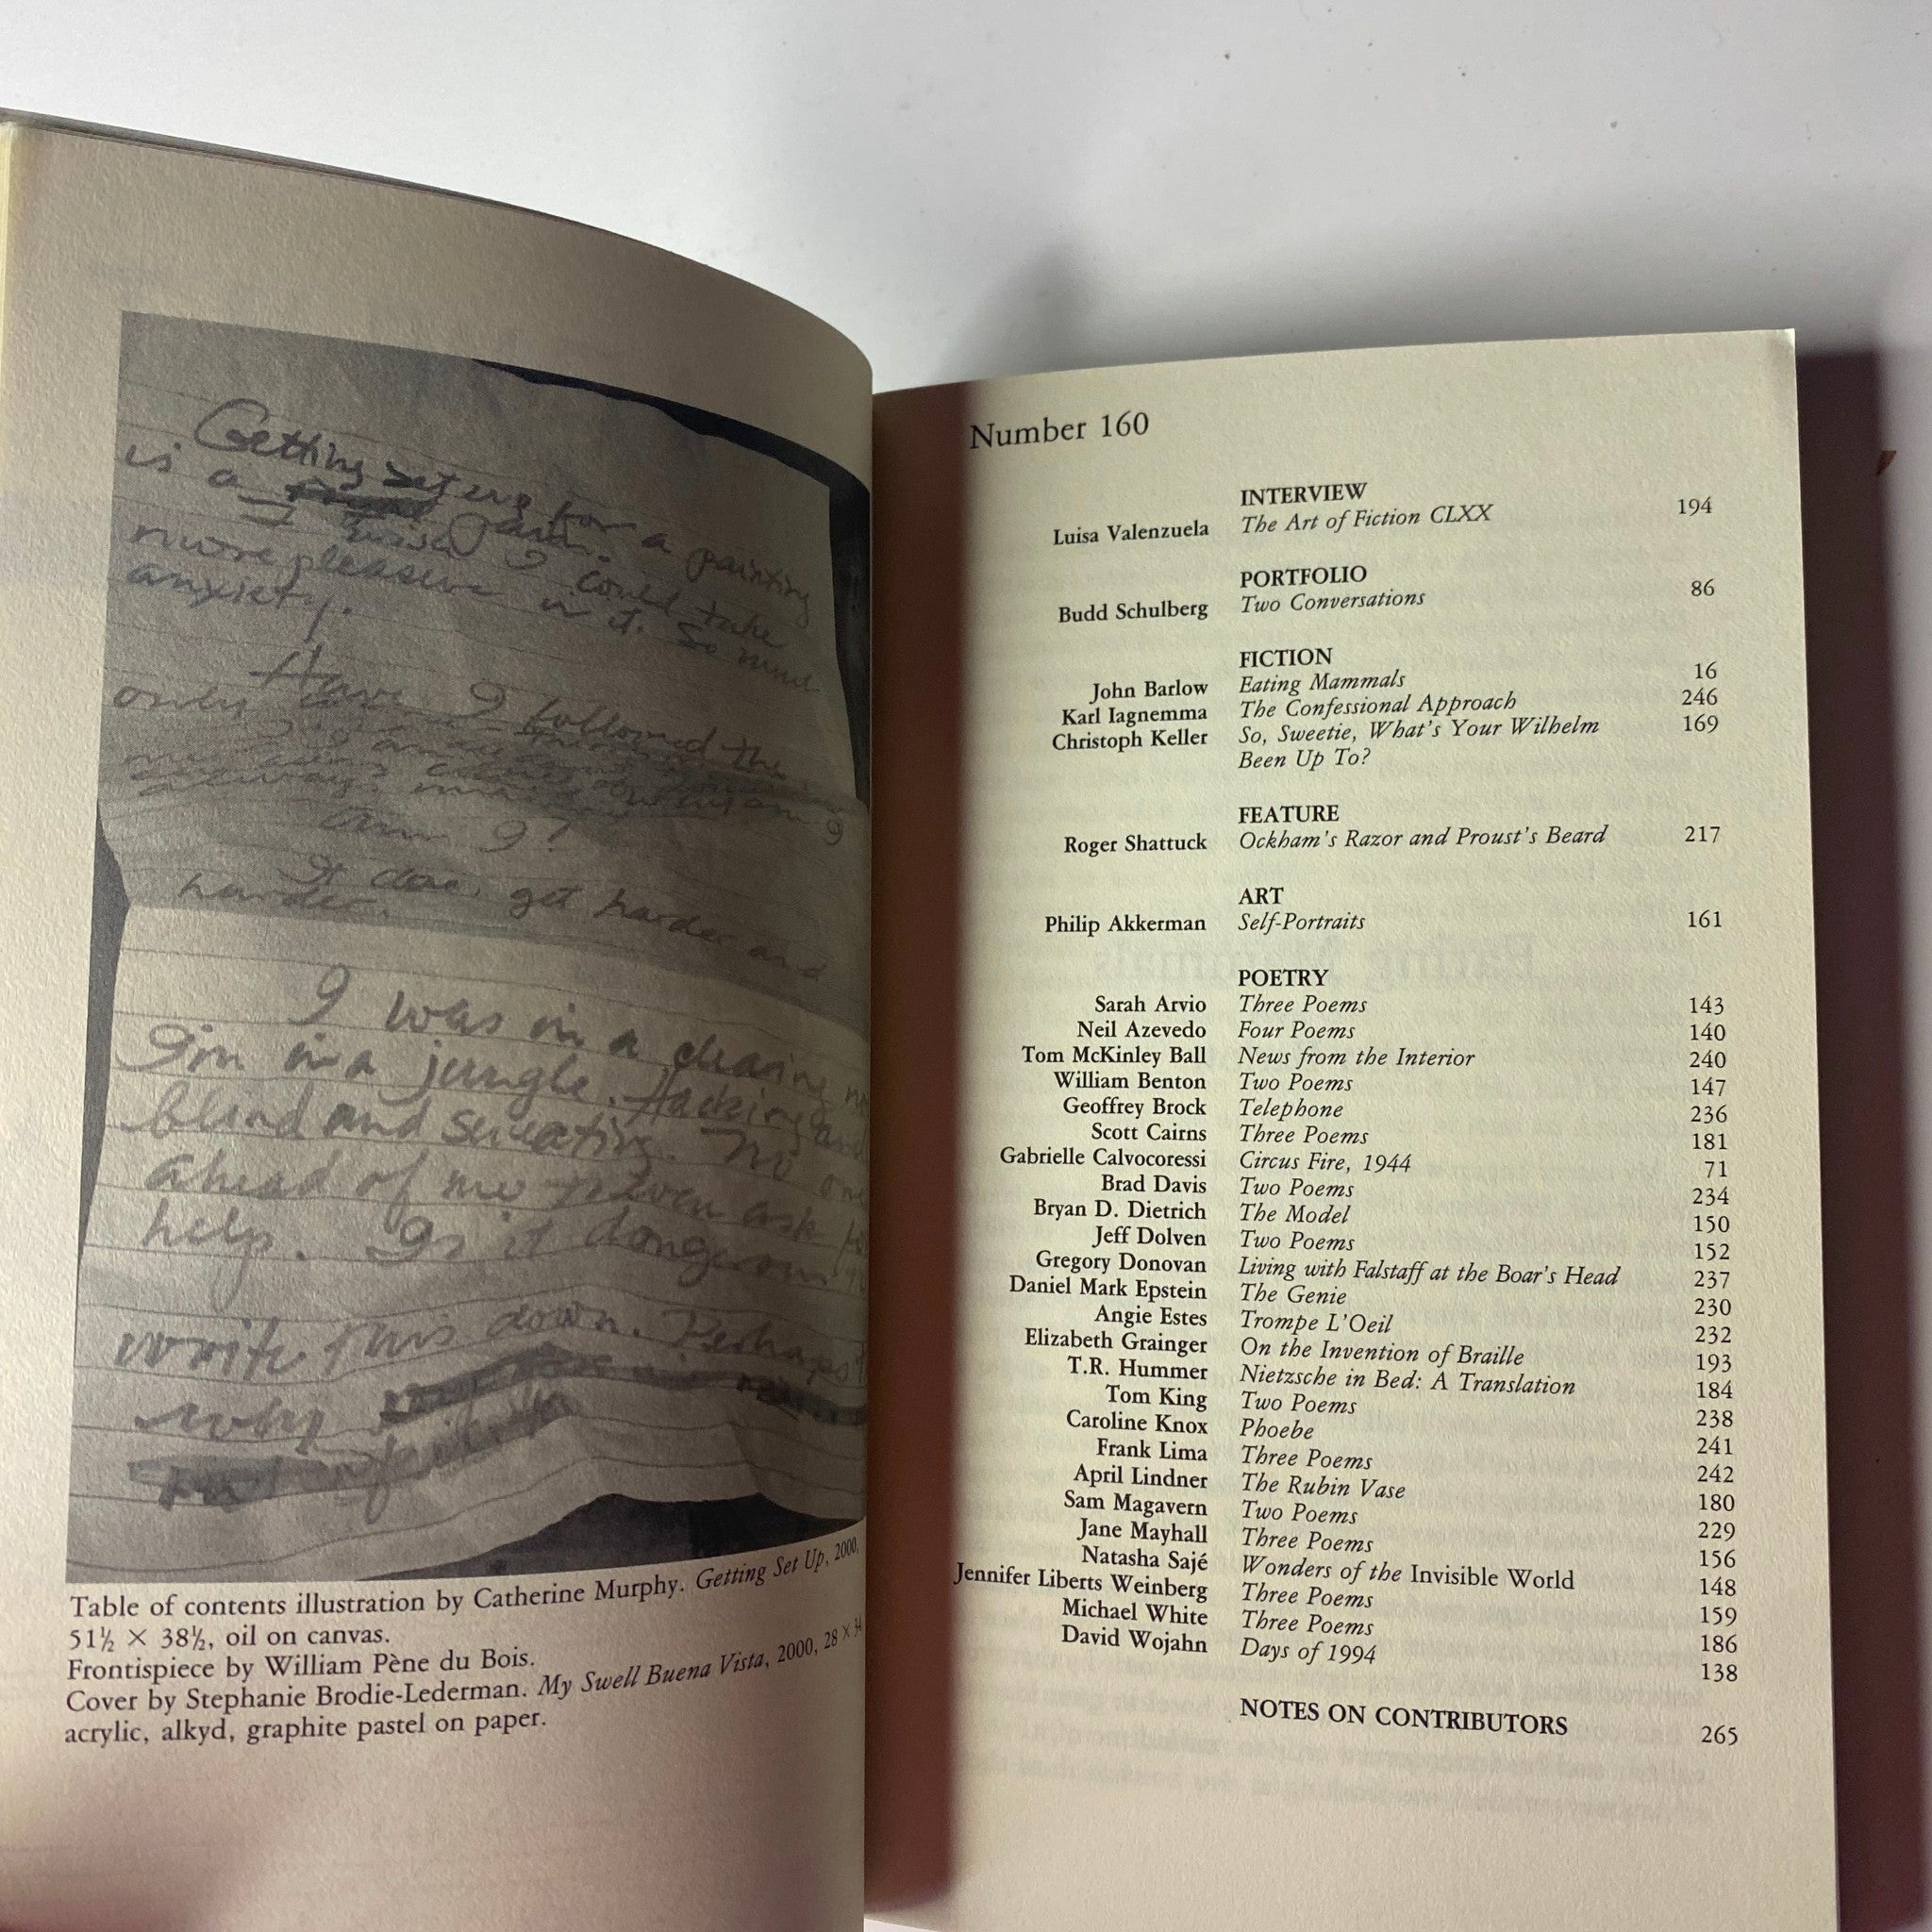 Getting set up for a painting
is a pain.
I wish I could take
more pleasure in it. So much
anxiety.
Have I followed the
only
am I?
It does get harder and
harder.
I was in a clearing
I'm in a jungle. Hacking
blind and sweating. No one
ahead of me even ask
help. Is it dangerous
write this down. Perhaps
why
Table of contents illustration by Catherine Murphy. Getting Set Up, 2000,
51½ × 38½, oil on canvas.
Frontispiece by William Pène du Bois.
Cover by Stephanie Brodie-Lederman. My Swell Buena Vista, 2000, 28 ×
acrylic, alkyd, graphite pastel on paper.
Number 160
INTERVIEW
Luisa Valenzuela The Art of Fiction CLXX 194
PORTFOLIO
Budd Schulberg Two Conversations 86
FICTION
John Barlow Eating Mammals 16
Karl Iagnemma The Confessional Approach 246
Christoph Keller So, Sweetie, What's Your Wilhelm 169
Been Up To?
FEATURE
Roger Shattuck Ockham's Razor and Proust's Beard 217
ART
Philip Akkerman Self-Portraits 161
POETRY
Sarah Arvio Three Poems 143
Neil Azevedo Four Poems 140
Tom McKinley Ball News from the Interior 240
William Benton Two Poems 147
Geoffrey Brock Telephone 236
Scott Cairns Three Poems 181
Gabrielle Calvocoressi Circus Fire, 1944 71
Brad Davis Two Poems 234
Bryan D. Dietrich The Model 150
Jeff Dolven Two Poems 152
Gregory Donovan Living with Falstaff at the Boar's Head 237
Daniel Mark Epstein The Genie 230
Angie Estes Trompe L'Oeil 232
Elizabeth Grainger On the Invention of Braille 193
T.R. Hummer Nietzsche in Bed: A Translation 184
Tom King Two Poems 238
Caroline Knox Phoebe 241
Frank Lima Three Poems 242
April Lindner The Rubin Vase 180
Sam Magavern Two Poems 229
Jane Mayhall Three Poems 156
Natasha Sajé Wonders of the Invisible World 148
Jennifer Liberts Weinberg Three Poems 159
Michael White Three Poems 186
David Wojahn Days of 1994 138
NOTES ON CONTRIBUTORS 265